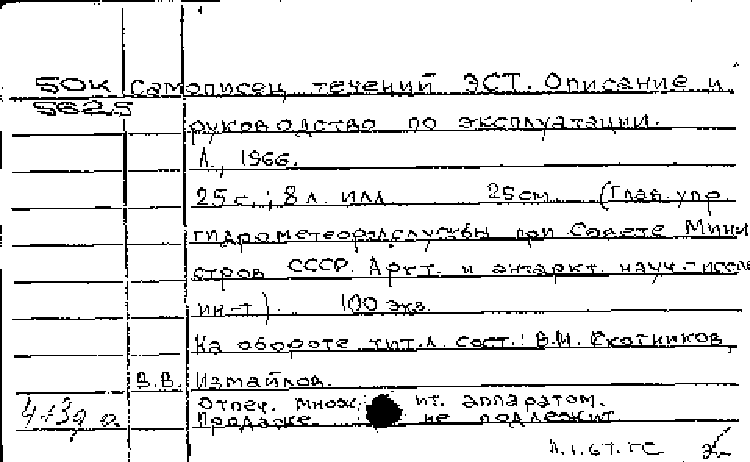 50к Самописец течений ЭСТ. Описание и
562.5
руководство по эксплуатации.
Л., 1966.
25 с.; 8 л. илл 25 см. (Глав. упр.
гидрометеорол. службы при Совете Мини
стров СССР. Аркт. и антаркт. науч.-иссле
ин-т). 100 экз.
На обороте тит. л. сост.: В.И. Скотников,
В.В. Измайлов.
Отпеч. множ. ит. аппаратом.
Продаже не подлежит